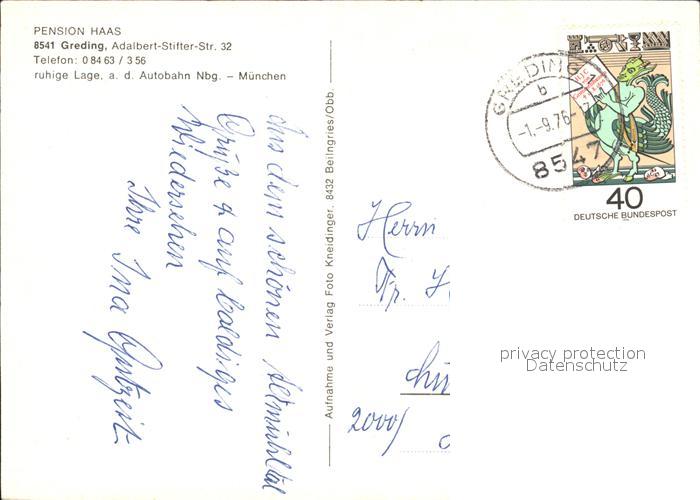 PENSION HAAS
8541 Greding, Adalbert-Stifter-Str. 32
Telefon: 0 84 63 / 3 56
ruhige Lage, a. d. Autobahn Nbg. – München
Aus dem schönen Altmühltal
Grüße & auf baldiges
Wiedersehen
Ihre Ina Gutzeit
Aufnahme und Verlag Foto Kneidinger, 8432 Beilngries/Obb.
GREDING
b
-1.-9.76-
8547
40
DEUTSCHE BUNDESPOST
Herrn
2000/
privacy protection
Datenschutz